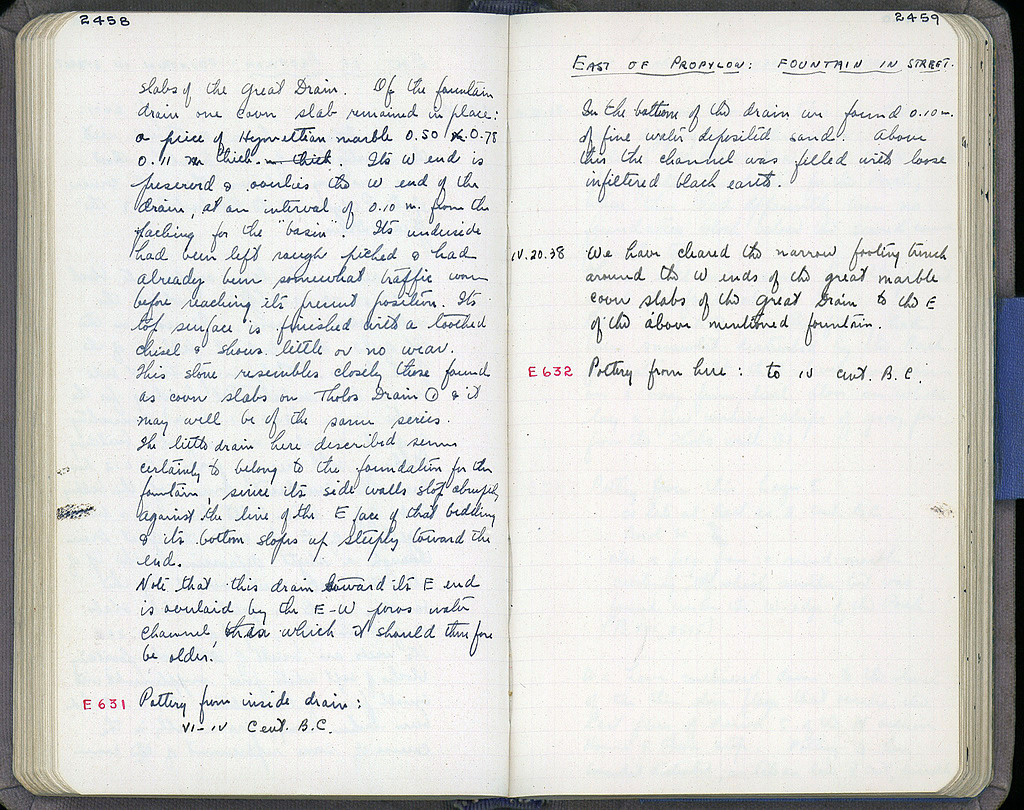 2458
slabs of the Great Drain. Of the fountain
drain one cover slab remained in place:
a piece of Hymettian marble 0.50 x 0.78
0.11 m thick m thick. Its W end is
preserved & overlies the W end of the
drain, at an interval of 0.10 m. from the
packing for the "basin". Its underside
had been left rough picked & had
already been somewhat traffic worn
before reaching its present position. Its
top surface is finished with a toothed
chisel & shows little or no wear.
This stone resembles closely those found
as cover slabs on Tholos Drain ① & it
may well be of the same series.
The little drain here described seems
certainly to belong to the foundation for the
fountain, since its side walls stop abruptly
against the line of the E face of that bedding
& its bottom slopes up steeply toward the
end.
Note that this drain toward its E end
is overlaid by the E-W poros water
channel, than which it should therefore
be older.
E 631 Pottery from inside drain:
VI-IV Cent. B.C.
2459
EAST OF PROPYLON: FOUNTAIN IN STREET.
In the bottom of the drain we found 0.10 m.
of fine water deposited sand. Above
this the channel was filled with loose
infiltered black earth.
IV.20.38 We have cleared the narrow footing trench
around the W ends of the great marble
cover slabs of the Great Drain to the E
of the above mentioned fountain.
E 632 Pottery from here: to IV cent. B.C.